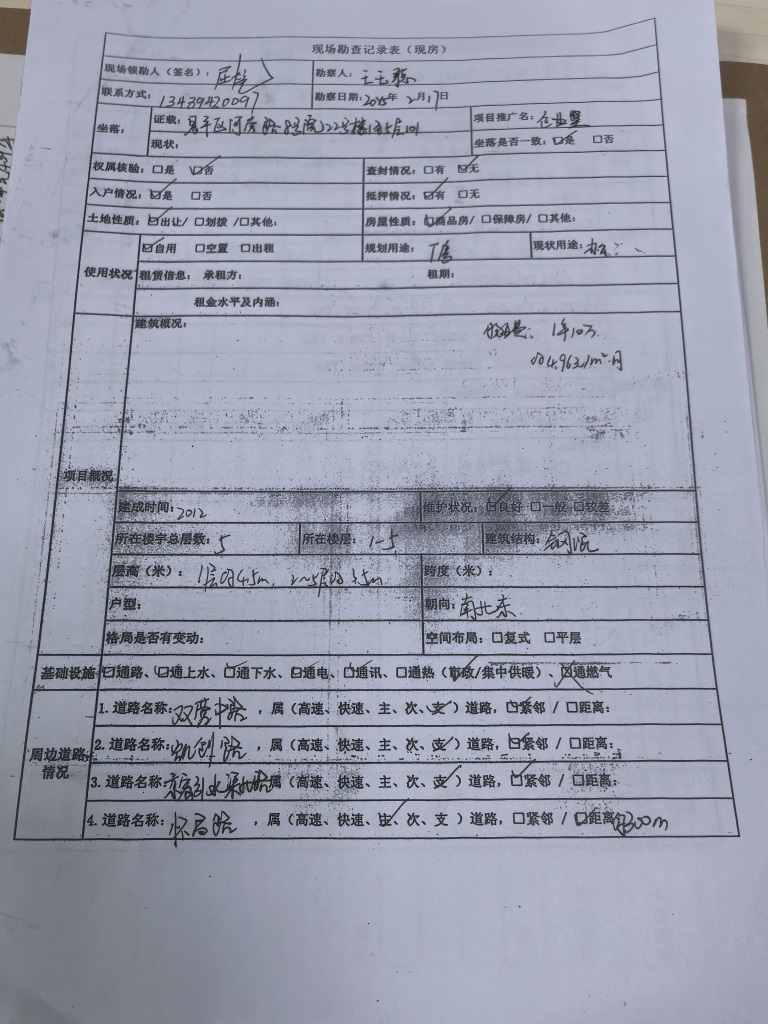 现场勘查记录表（现房）
现场领勘人（签名）： 勘察人：
联系方式：13439420097 勘察日期：2025年 2月17日
坐落： 证载： 项目推广名：企业墅
现状： 坐落是否一致：☑是 ☐否
权属核验：☐是 ☑否 查封情况：☐有 ☑无
入户情况：☑是 ☐否 抵押情况：☑有 ☐无
土地性质：☑出让/ ☐划拨 /☐其他： 房屋性质：☑商品房/ ☐保障房/ ☐其他：
使用状况 ☑自用 ☐空置 ☐出租 规划用途：厂房 现状用途：办公
租赁信息： 承租方： 租期：
租金水平及内涵：
项目概况 建筑概况： 1年10万
4.963/m²·月
建成时间：2012 维护状况：☑良好 ☐一般 ☐较差
所在楼宇总层数：5 所在楼层：1-5 建筑结构：钢混
层高（米）：1层约4.5m，2~5层约3.5m 跨度（米）：
户型： 朝向：南北东
格局是否有变动： 空间布局：☐复式 ☐平层
基础设施 ☑通路、☑通上水、☑通下水、☑通电、☑通讯、☐通热（市政/集中供暖）、☒通燃气
周边道路情况 1. 道路名称：双营中路 ，属（高速、快速、主、次、支）道路，☑紧邻 / ☐距离：
2. 道路名称：凯创路 ，属（高速、快速、主、次、支）道路，☑紧邻 / ☐距离：
3. 道路名称：京密引水渠北路 属（高速、快速、主、次、支）道路，☑紧邻 / ☐距离：
4. 道路名称：怀昌路 ，属（高速、快速、主、次、支）道路，☐紧邻 / ☑距离约300m